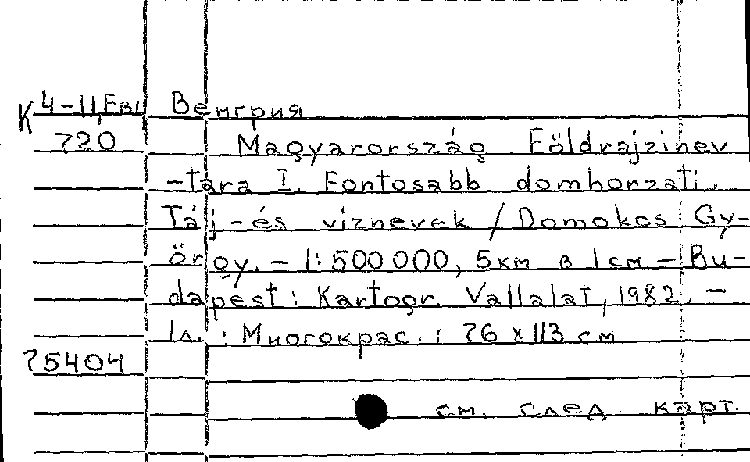 К 4-11, Евг Венгрия
720 Magyarország Földrajzinev
-tára I. Fontosabb domborzati.
Táj-és víznevek / Domokos Gy-
örgy. - 1:500 000, 5км в 1см - Bu-
dapest: Kartogr. Vallalat, 1982. -
1л. : Многокрас. ; 76 x 113 см
75404
см. след карт.